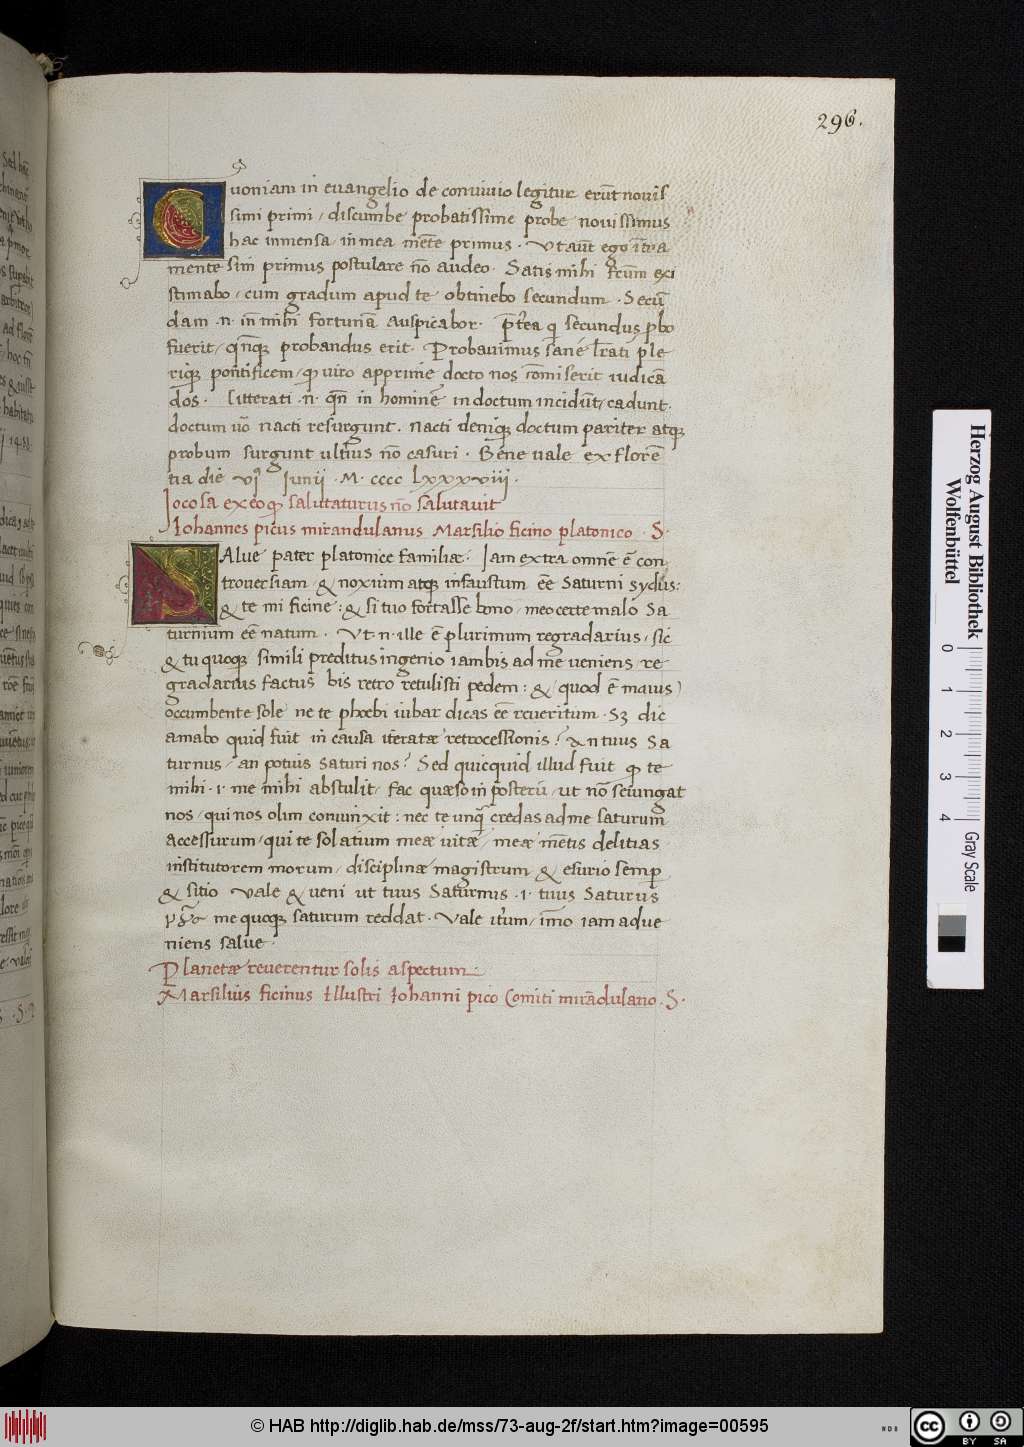 296.
Quoniam in euangelio de conuiuio legitur erūt nouis
simi primi / discumbe probatissime probe nouissimus
hac inmensa in mea mēte primus. Vt aūt ego ītra
mente sim primus postulare nō audeo. Satis mihi exi
stimabo / cum gradum apud te obtinebo secundum. Secū
dam .n. in mihi fortunā auspicabor. p̄terea q secundus ꝓbo
fuerit / probandus erit. Probauimus sane lr̄ati ple
riqꝫ pontificem / ꝙ uiro apprime docto nos cōmiserit iudicā
dos. Litterati .n. qn̄ in hominē indoctum incidūt / cadunt.
doctum uō nacti resurgunt. nacti deniqꝫ doctum pariter atqꝫ
probum surgunt ultīus nō casuri. Bene uale ex florē
tia die vj Junij .M. cccc Lxxxviij.
Jocosa ex eo ꝙ salutaturus nō salutauit
Iohannes picus mirandulanus Marsilio ficino platonico .S.
SAlue pater platonice familiæ. Jam extra omnē ē con
trouersiam & noxium atqꝫ infaustum eē Saturni sydus:
& te mi ficine: & si tuo fortasse bono / meo certe malo Sa
turnium eē natum. Vt .n. ille ē plurimum regradarius / sic
& tu quoqꝫ simili preditus ingenio iam bis ad me ueniens re
gradarius factus bis retro retulisti pedem: & quod ē maius)
occumbente sole ne te phoebi iubar dicas eē reueritum. Sꝫ dic
amabo quid fuit in causa iteratæ retrocessionis? An tuus Sa
turnus / an potius saturi nos? Sed quicquid illud fuit ꝙ te
mihi .i. me mihi abstulit / fac quæso in posterū / ut nō seiungat
nos / qui nos olim coniunxit: nec te unꝗ̄ credas ad me saturum
accessurum / qui te solatium meæ uitæ / meæ mētis delitias
institutorem morum / disciplinæ magistrum & esurio semp̄
& sitio Vale & ueni ut tuus Saturnus .i. tuus Saturus
me quoqꝫ saturum reddat. Vale itr̄um / imō iam adue
niens salue.
Planetæ reuerentur solis aspectum
Marsilius ficinus Illustri Iohanni pico Comiti mirādulano .S.
Herzog August Bibliothek
Wolfenbüttel
0 1 2 3 4
Gray Scale
© HAB http://diglib.hab.de/mss/73-aug-2f/start.htm?image=00595
WDB
cc BY SA